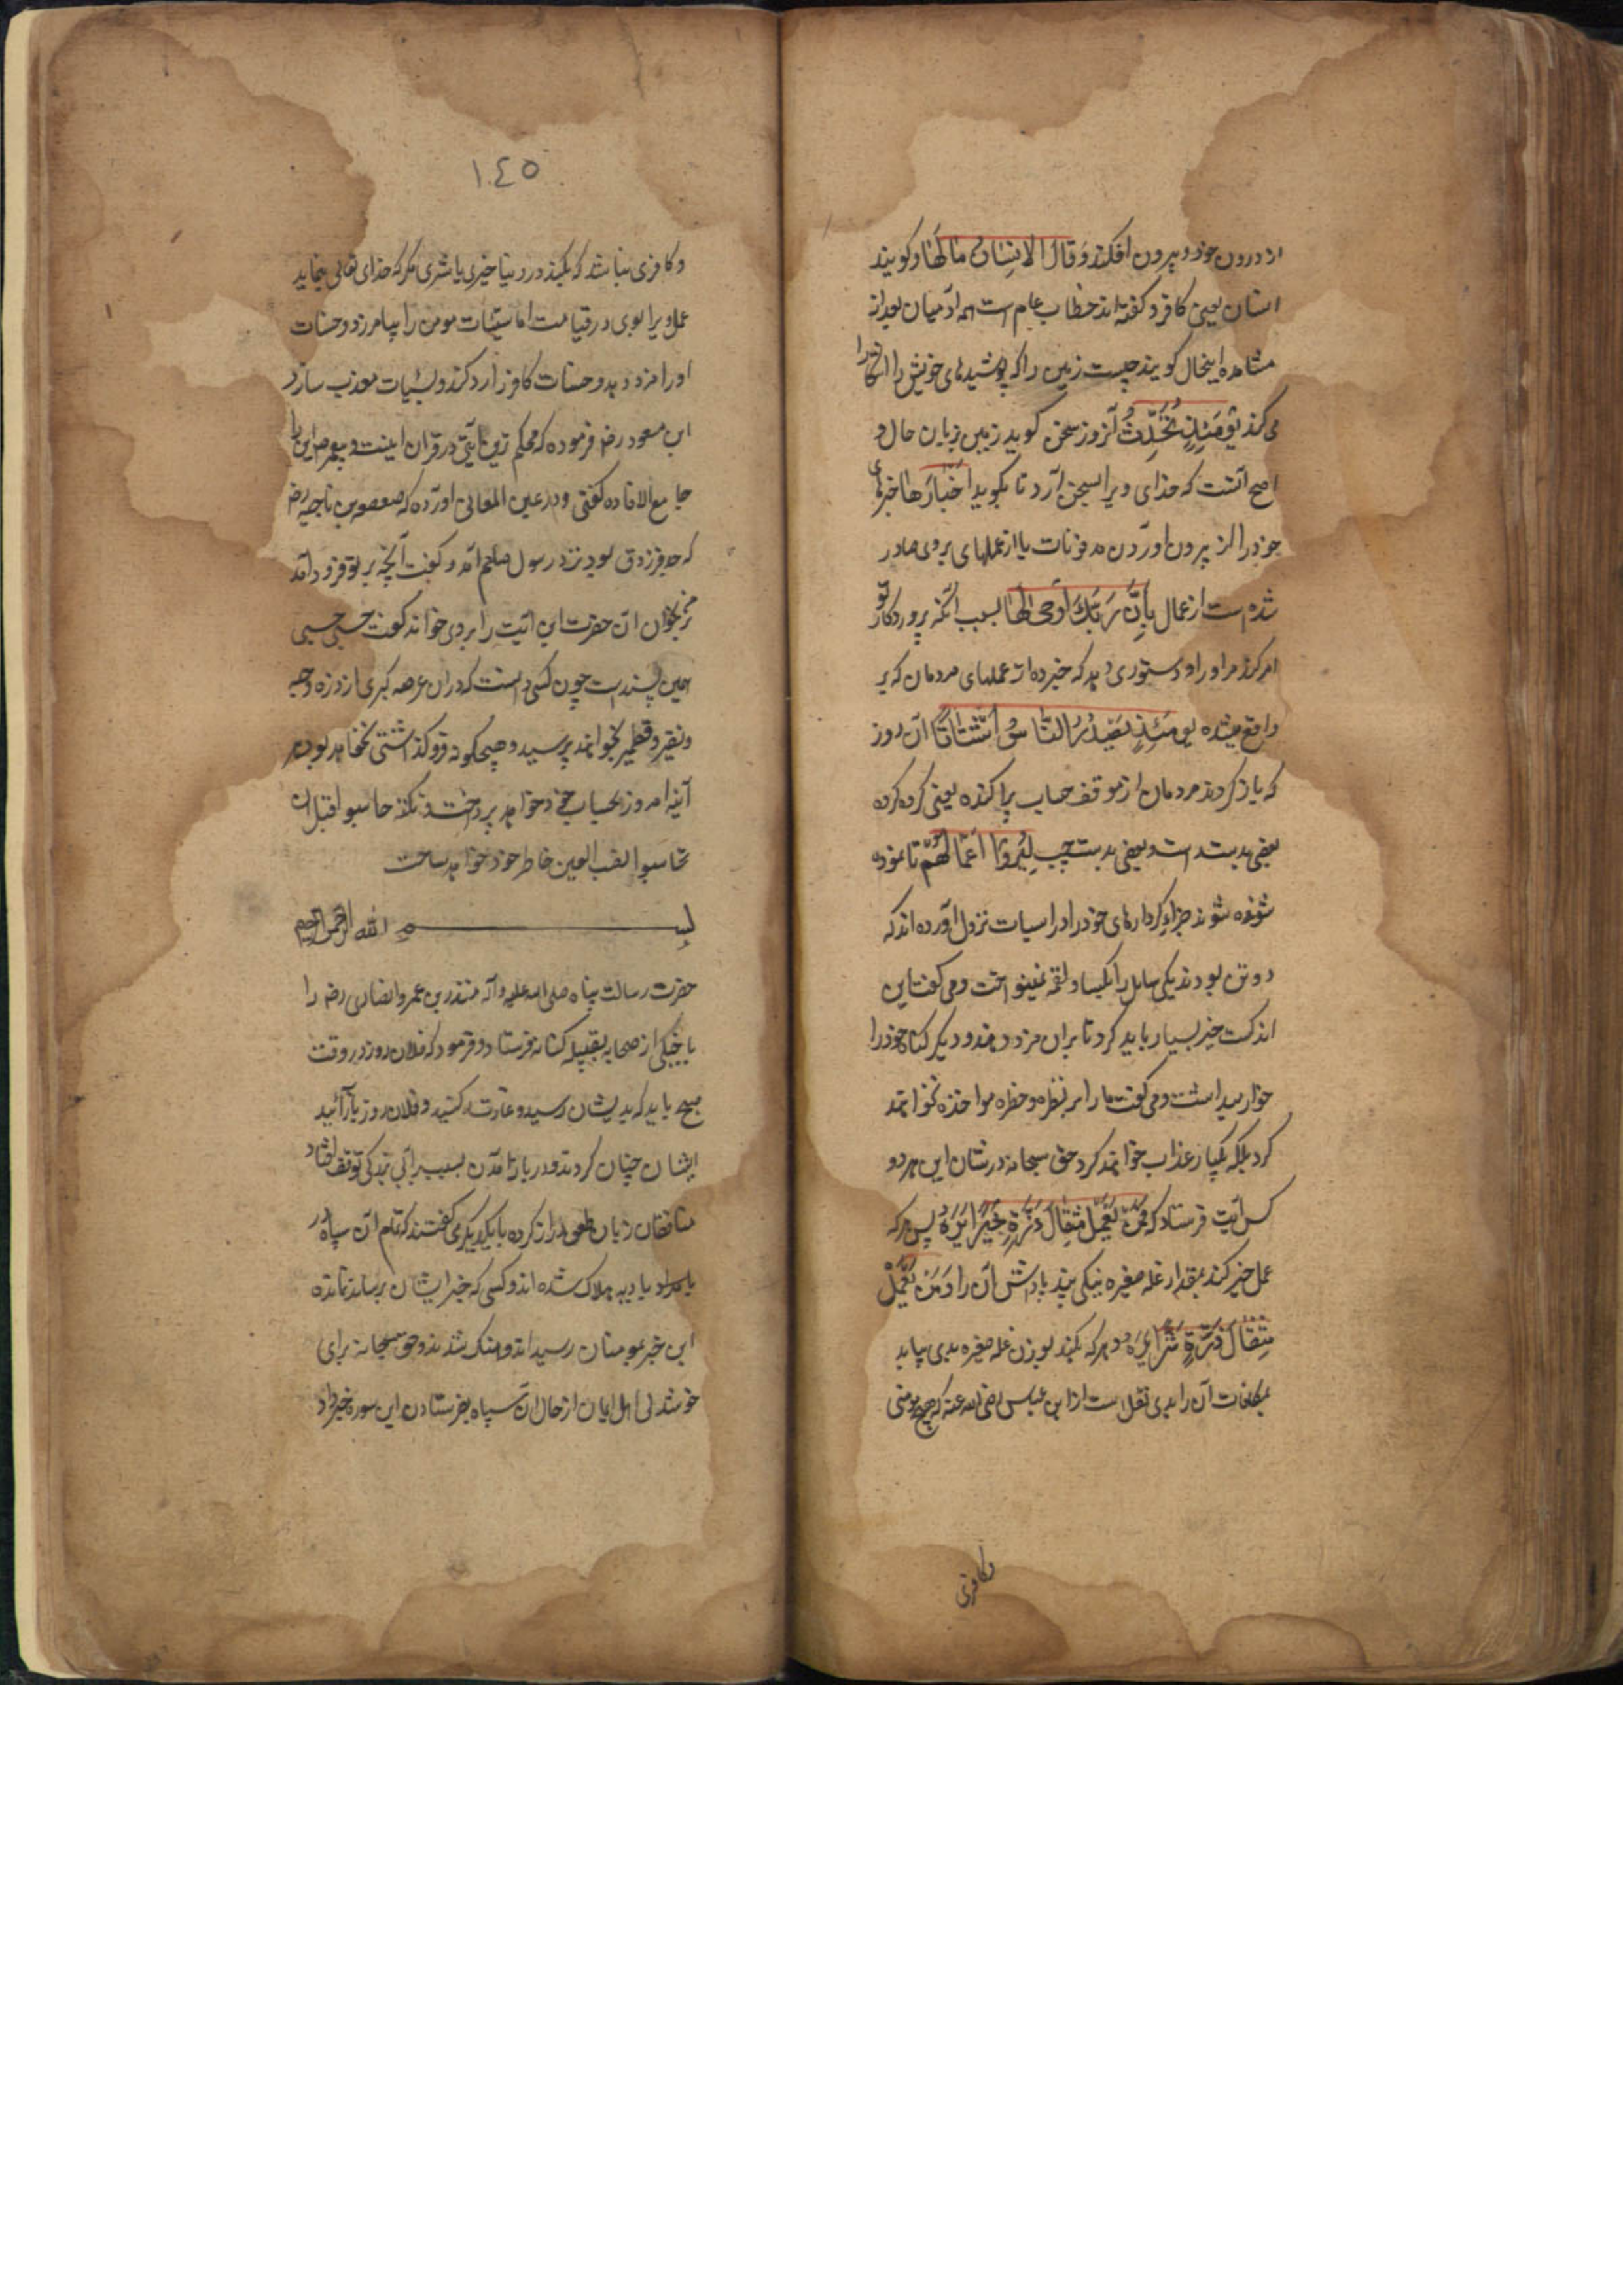 از درون خود و بیرون افکند وَقَالَ الْاِنْسَانُ مَا لَهَا و گویند
انسان یعنی کافر و گفته‌اند خطاب عام است همه آدمیان بعد از
مشاهده اینحال گویند چیست زمین را که پوشیدهای خویش را آشکارا
می کند یَوْمَئِذٍ تُحَدِّثُ آنروز سخن گوید زمین بزبان حال و
اصح آنست که خدای ویرا بسخن آرد تا بگوید اَخْبَارَهَا خبرهای
خود را از بیرون آوردن مدفونات یا از عملهای بر وی صادر
شده است از عمال بِاَنَّ رَبَّكَ اَوْحٰی لَهَا بسبب آنکه پروردکار تو
امر کرد مر او را و دستوری دهد که خبر ده از عملهای مردمان که بر تو
واقع شده یَوْمَئِذٍ یَصْدُرُ النَّاسُ اَشْتَاتًا آن روز
که باز کردند مردمان از موقف حساب پراکنده یعنی کروه کروه
بعضی بدست راست و بعضی بدست چپ لِیُرَوْا اَعْمَالَهُمْ تا نموده
شوند جزای کردارهای خود را در اسباب نزول آورده اند که
دو تن بودند یکی سایل را بکیاه و لقمه نمینواخت و می کفت این
اندکست خیر بسیار باید کرد تا بران مزد دهند و دیکر کناه خود را
خوار میداشت و می کفت ما را بر نظره و خطره مواخذه نخواهند
کرد بلکه بکبایر عذاب خواهند کرد حق سبحانه در شان این هر دو
کس آیت فرستاد که فَمَنْ یَعْمَلْ مِثْقَالَ ذَرَّةٍ خَیْرًا یَرَهُ پس هر که
عمل خیر کند بمقدار نمله صغیره نیکی بیند پاداش آن را وَمَنْ یَعْمَلْ
مِثْقَالَ ذَرَّةٍ شَرًّا یَرَهُ و هر که بکند بوزن نمله صغیره بدی بیابد
مکافات آن را بدی نقل است از ابن عباس رضی الله عنه که هیچ مومنی
وکافری
١٠٤٥
و کافری نباشد که بکند در دنیا خیری یا شری مکر که خدای تعالی بنماید
عمل ویرا بوی در قیامت اما سیئات مومن را بیامرزد و حسنات
او را مزد دهد و حسنات کافر را رد کند و بسیئات معذب سازد
ابن مسعود رض فرموده که محکم ترین آیتی در قرآن اینست و پیغمبر ص این را
جامع الافاده کفتی و در عین المعانی آورده که صعصعه بن ناجیه رض
که جد فرزدق بود نزد رسول صلعم آمد و کفت آنچه بر تو فرود آمد
بر من بخوان آن حضرت این آیت را بر وی خواند کفت حسبی حسبی
همین پسند است چون کسی دانست که در آن عرصه کبری از ذره و حبه
و نقیر و قطمیر بخواهند پرسید و هیچکونه فروکذاشتی نخواهد بود هر
آینه امروز بحساب خود خواهد پرداخت و نکته حاسبوا قبل ان
تحاسبوا نصب العین خاطر خود خواهد ساخت
بسم الله الرحمن الرحیم
حضرت رسالت پناه صلی الله علیه وآله منذر بن عمرو انصاری رض را
با خیلی از صحابه بقبیله کنانه فرستاد و فرمود که فلان روز در وقت
صبح باید که بدیشان رسید و غارت کنید و فلان روز بازآئید
ایشان چنان کردند و در بازآمدن بسبب توقف افتاد
منافقان زبان طعن دراز کرده با یکدیکر می کفتند که تمام آن سپاه در
بادیه هلاک شده اند و کسی که خبر ایشان برساند نمانده
این خبر بمومنان رسید اندوهناک شدند و حق سبحانه برای
خوشدلی اهل ایمان از حال آن سپاه بفرستادن این سوره خبر داد